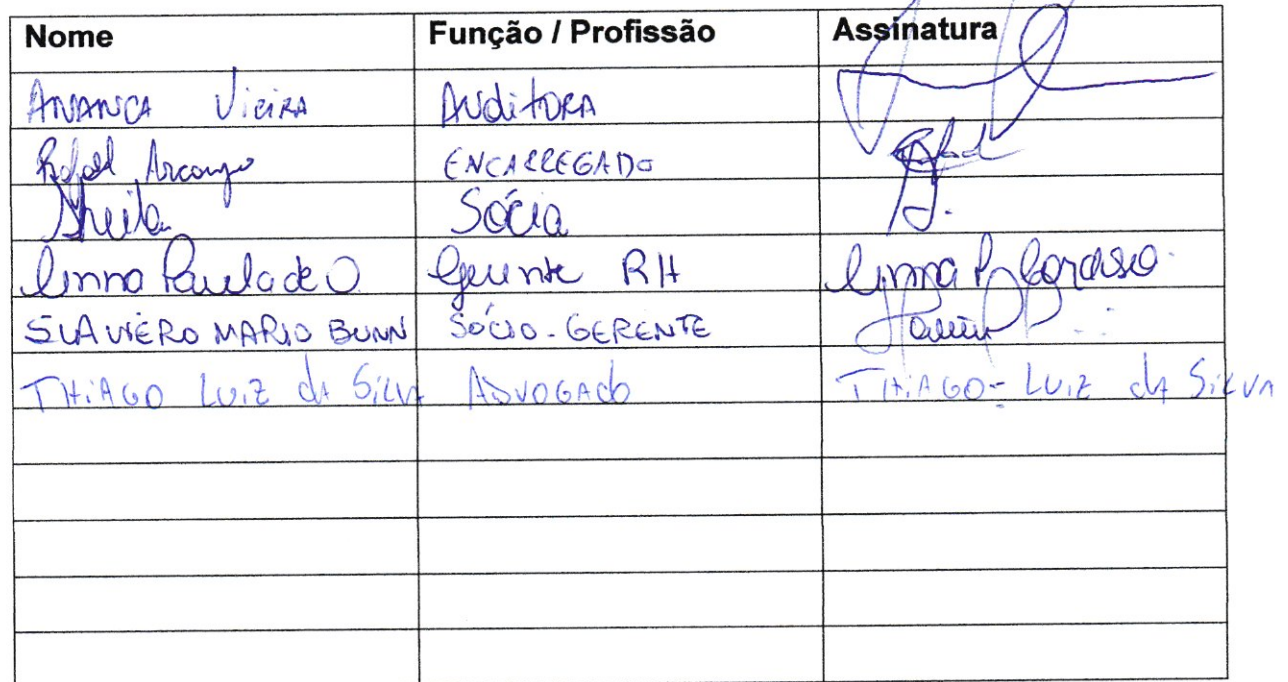 Nome Função / Profissão Assinatura
Vieira Auditora
Rafael Arcanjo ENCARREGADO Rafael
Sheila Sócia
Anna Paula de O Gerente RH Anna P Cardoso
SLAVIERO MARIO BUNN SÓCIO-GERENTE
THiAGO LUiZ dA SiLVA ADVOGAdo THiAGO LUiZ dA SiLVA